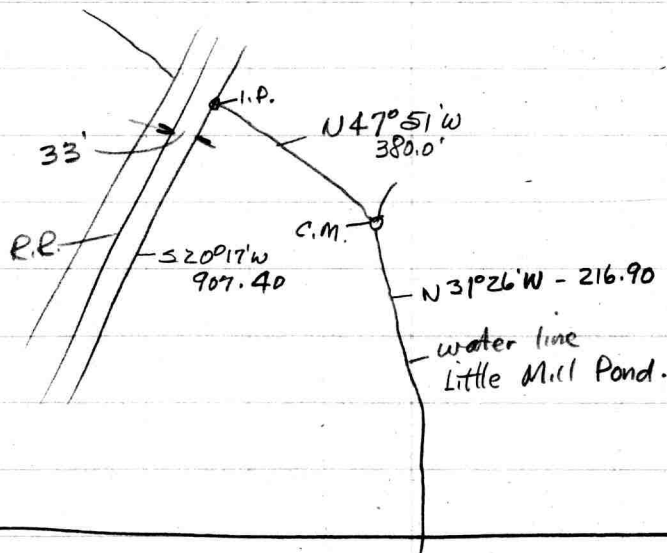 I.P.
N 47° 51' W
380.0'
33'
C.M.
R.R.
S 20° 17' W
907.40
N 31° 26' W - 216.90
water line
Little Mill Pond.